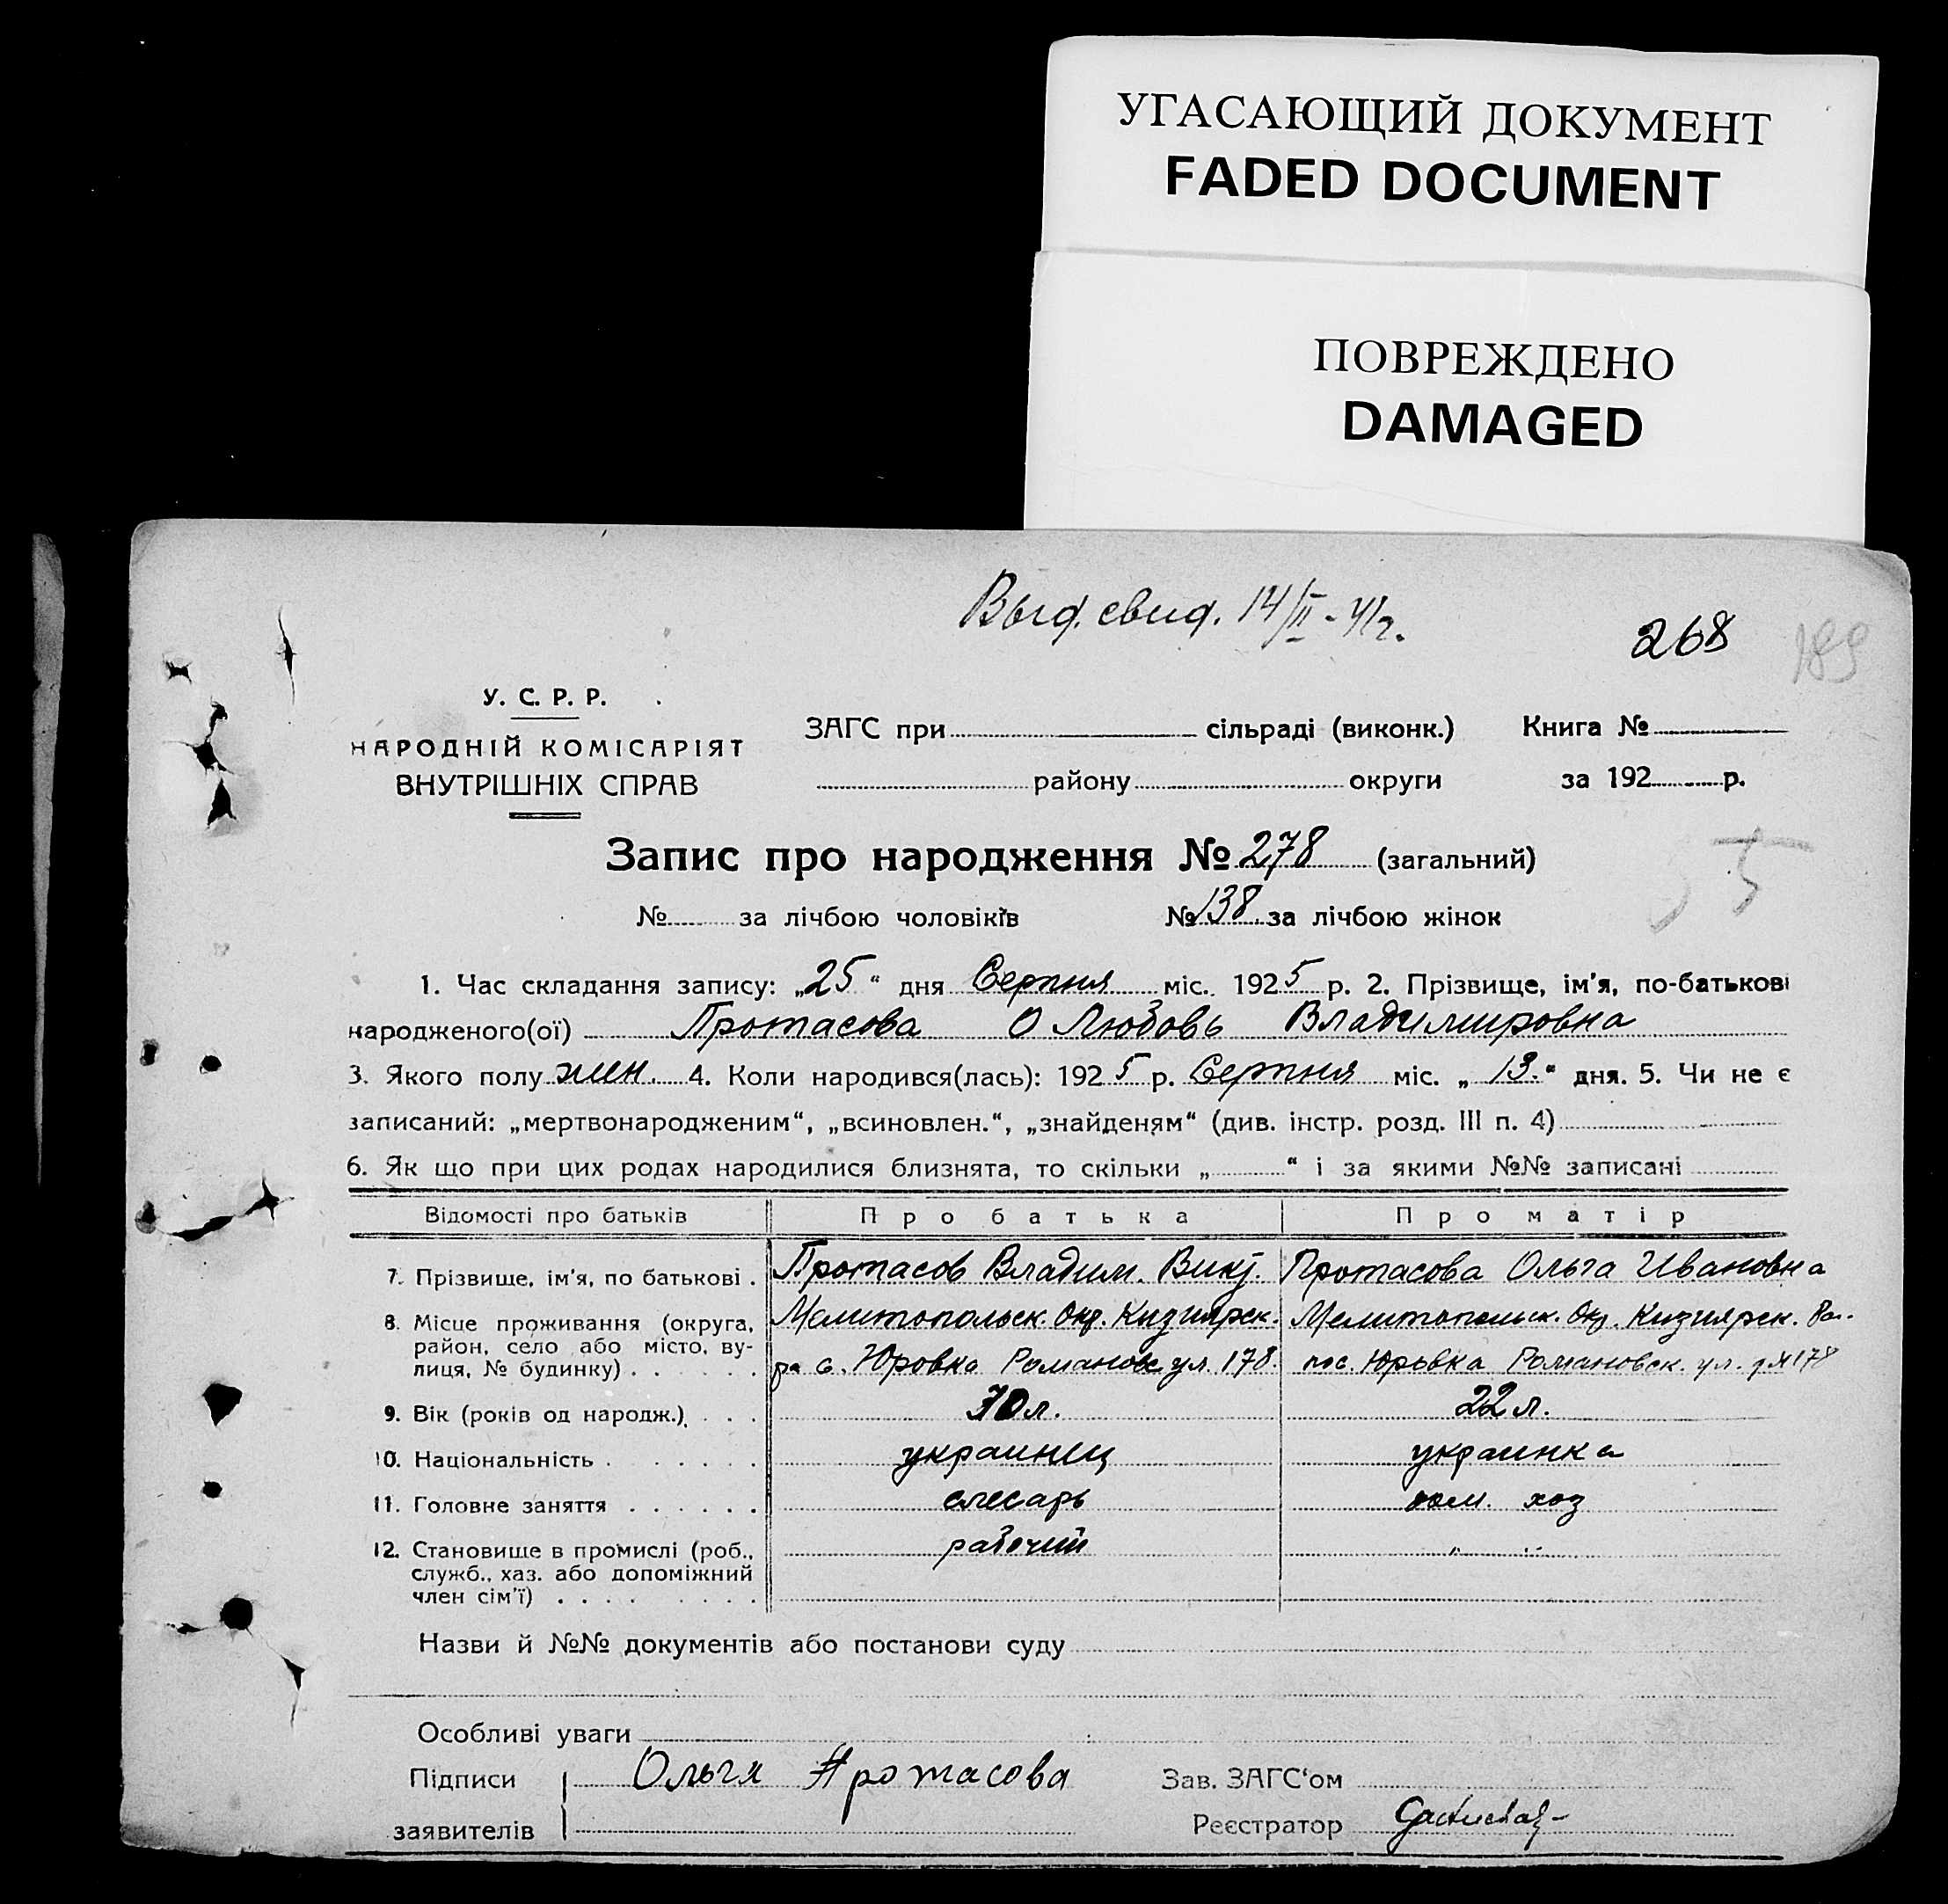 УГАСАЮЩИЙ ДОКУМЕНТ
FADED DOCUMENT
ПОВРЕЖДЕНО
DAMAGED
Выд. свид. 14/II - 41г.
268 189
У. С. Р. Р.
НАРОДНІЙ КОМІСАРІЯТ
ВНУТРІШНІХ СПРАВ
ЗАГС при сільраді (виконк.) Книга №
району округи за 192 р.
Запис про народження № 278 (загальний)
№ за лічбою чоловіків № 138 за лічбою жінок
1. Час складання запису: „25“ дня Серпня міс. 1925 р. 2. Прізвище, ім'я, по-батькові
народженого(ої) Протасова Любовь Владимировна
3. Якого полу жен. 4. Коли народився(лась): 1925 р. Серпня міс. „13.“ дня. 5. Чи не є
записаний: „мертвонародженим“, „всиновлен.“, „знайденям“ (див. інстр. розд. III п. 4)
6. Як що при цих родах народилися близнята, то скільки „ “ і за якими №№ записані
Відомості про батьків Про батька Про матір
7. Прізвище, ім'я, по батькові . Протасов Владим. Протасова Ольга Ивановна
8. Місце проживання (округа, Мелитопольск. Окр. Кизиярск. Мелитопольск. Окр. Кизиярск. Ра-
район, село або місто, ву-
лиця, № будинку) . . . . . . ра с. Юровка Романовс ул. 178. пос. Юрьвка Романовск. ул. 178
9. Вік (років од народж.) . . . л. 22 л.
10. Національність . . . . . . украинец украинка
11. Головне заняття . . . . . . слесарь дом. хоз
12. Становище в промислі (роб., рабочий " "
служб., хаз. або допоміжний
член сім'ї) . . . . . . . .
Назви й №№ документів або постанови суду
Особливі уваги
Підписи Ольга Протасова Зав. ЗАГС'ом
заявителів Реєстратор